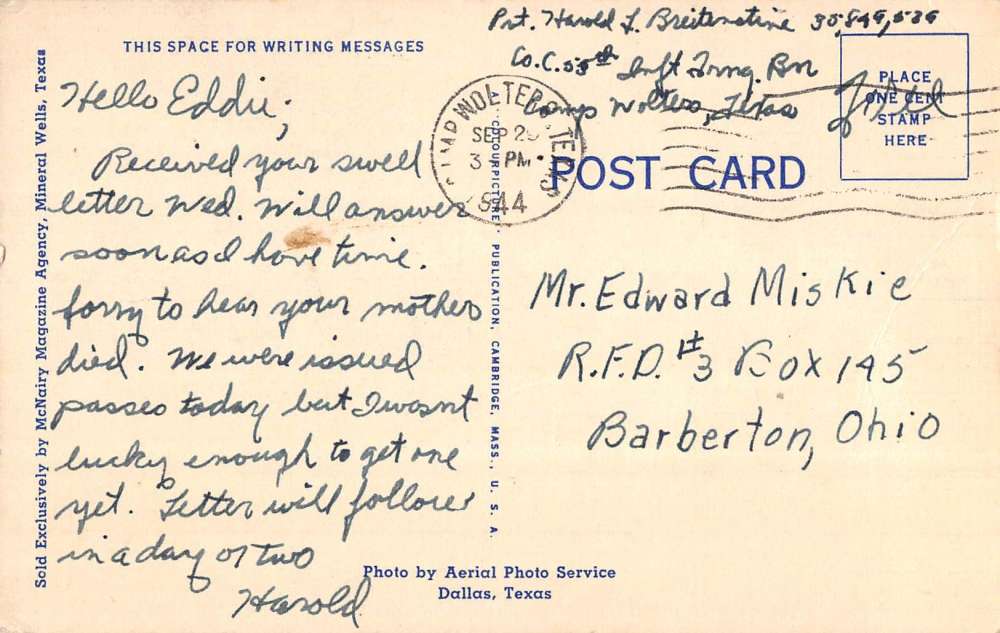 Pvt. Harold L. Breitenstine 35,849,526
THIS SPACE FOR WRITING MESSAGES
Co. C. 55th Inft Trng. Bn
Camp Wolters, Texas
Free
PLACE
ONE CENT
STAMP
HERE
CAMP WOLTERS TEXAS
SEP 29
3 PM
1944
POST CARD
Hello Eddie;
Received your swell
letter Wed. Will answer
soon as I have time.
Sorry to hear your mother
died. We were issued
passes today but I wasnt
lucky enough to get one
yet. Letter will follow
in a day or two
Harold
Mr. Edward Miskie
R.F.D. #3 Box 145
Barberton, Ohio
Sold Exclusively by McNairy Magazine Agency, Mineral Wells, Texas
COLOURPICTURE PUBLICATION, CAMBRIDGE, MASS., U. S. A.
Photo by Aerial Photo Service
Dallas, Texas